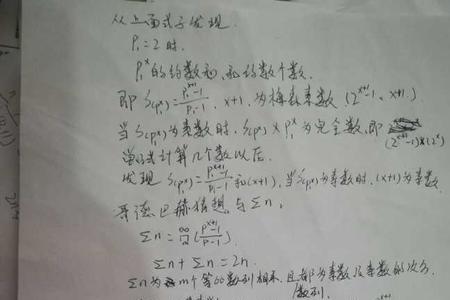 从上面式子发现
P₁=2时.
P₁ˣ的约数和,和约数个数.
即 S(p₁ˣ)=(P₁ˣ⁺¹-1)/(P₁-1). x+1,为梅森素数 (2ˣ⁺¹-1、x+1)
当S(p₁ˣ)为素数时, S(p₁ˣ)×P₁ˣ为完全数,即
(2ˣ⁺¹-1)×(2ˣ)
计算几个数以后.
发现 S(p₁ˣ)=(P₁ˣ⁺¹-1)/(P₁-1)和(x+1),当S(p₁ˣ)为素数时,(x+1)为素数
哥德巴赫猜想与Σn:
Σn=
Σn+Σn=2n.
Σn为m个等比数列相乘.且都为素数及素数的次方
数列.